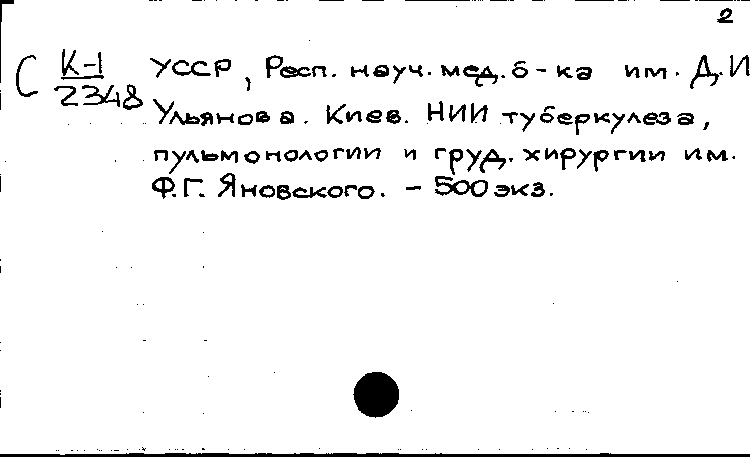 2
С К-1 УССР, Респ. науч. мед. б-ка им. Д.И
2348 Ульянова. Киев. НИИ туберкулеза,
пульмонологии и груд. хирургии им.
Ф.Г. Яновского. - 500 экз.